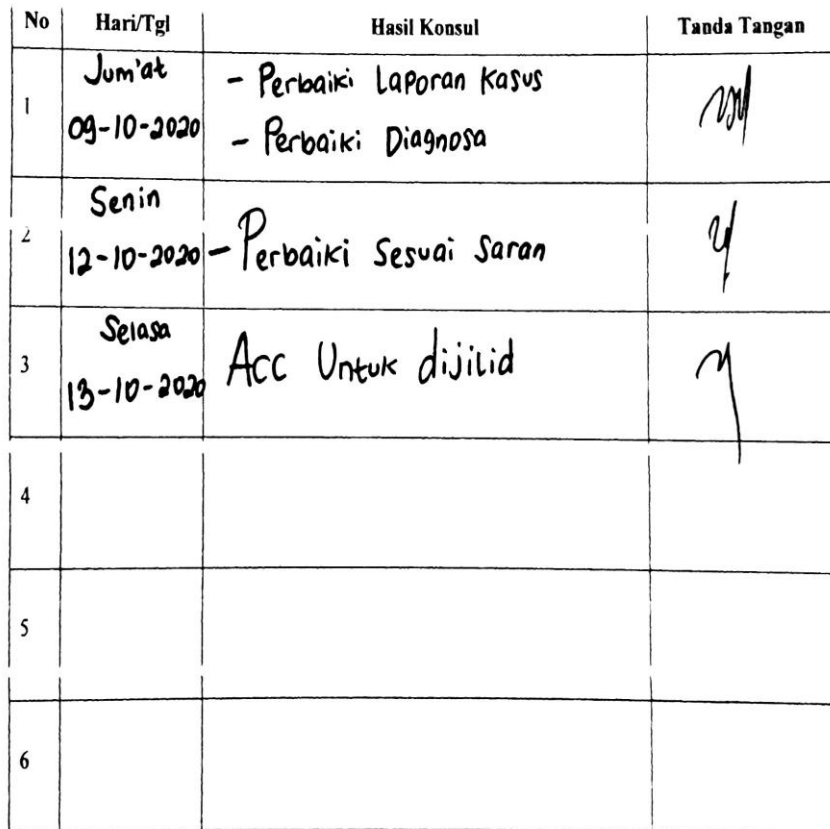 No Hari/Tgl Hasil Konsul Tanda Tangan
1 Jum'at 09-10-2020 - Perbaiki Laporan Kasus
- Perbaiki Diagnosa
2 Senin 12-10-2020 - Perbaiki Sesuai Saran
3 Selasa 13-10-2020 Acc Untuk dijilid
4
5
6